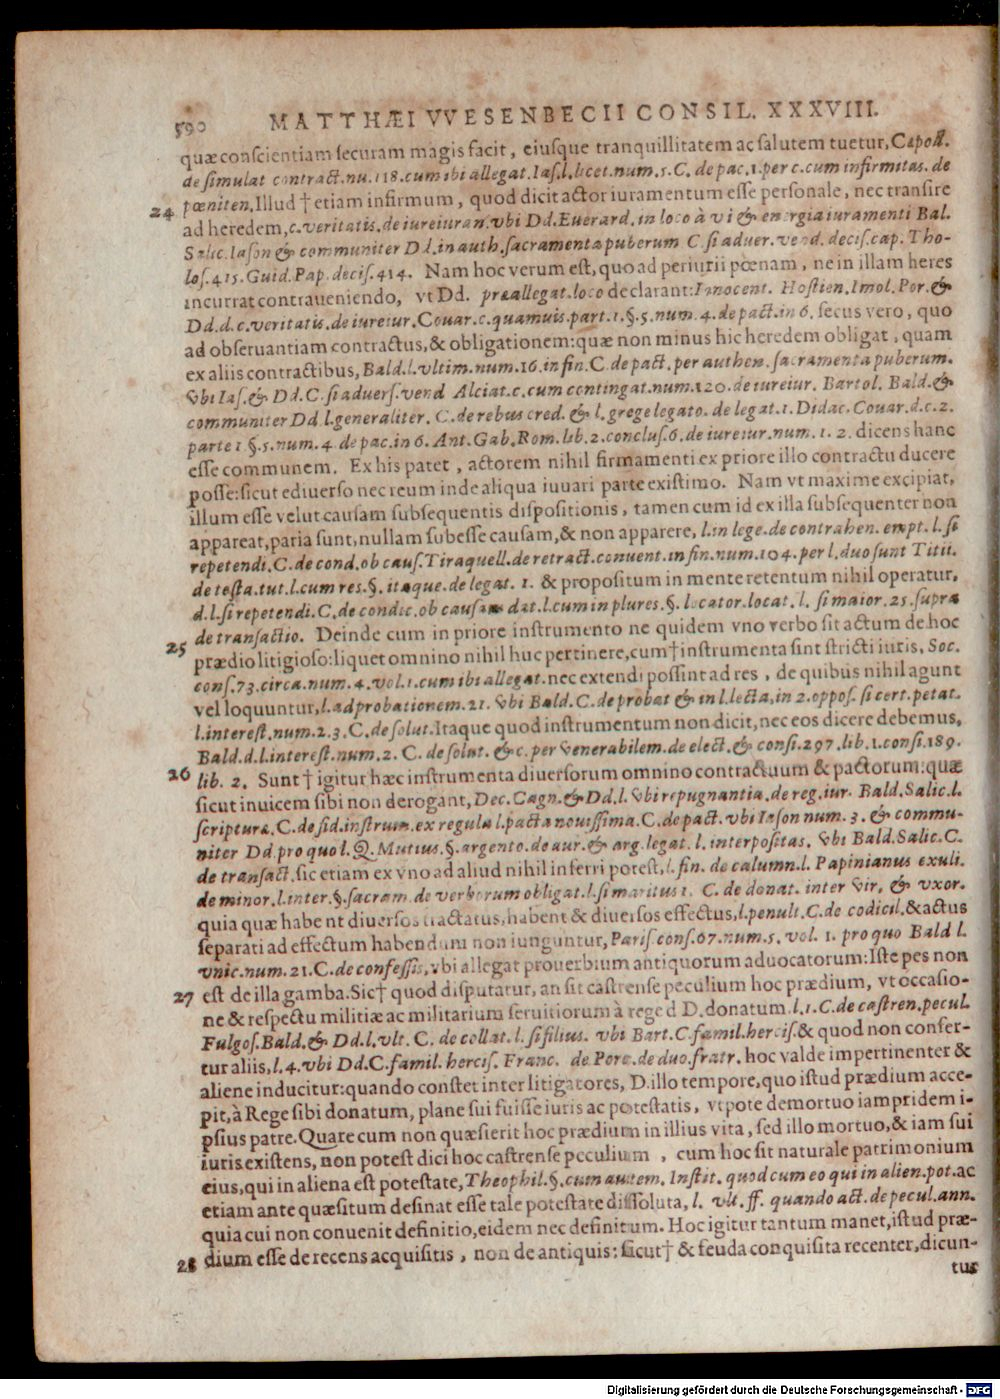 590 MATTHÆI VVESENBECII CONSIL. XXXVIII.
quæ conscientiam securam magis facit, eiusque tranquillitatem ac salutem tuetur, Capoll.
de simulat contract. nu. 118. cum ibi allegat. Ias. l. licet. num. 5. C. de pac. 1. per c. cum infirmitas. de
pœniten. Illud † etiam infirmum, quod dicit actor iuramentum esse personale, nec transire
24 ad heredem, c. veritatis. de iureiuran. vbi Dd. Euerard. in loco à vi & energia iuramenti Bal.
Salic. Iason & communiter Dd. in auth. sacramenta puberum C. si aduer. vend. decis. cap. Tho-
los. 415. Guid. Pap. decis. 414. Nam hoc verum est, quo ad periurii pœnam, ne in illam heres
incurrat contraueniendo, vt Dd. præallegat. loco declarant: Innocent. Hostien. Imol. Por. &
Dd. d. c. veritatis. de iureiur. Couar. c. quamuis. part. 1. §. 5. num. 4. de pact. in 6. secus vero, quo
ad obseruantiam contractus, & obligationem: quæ non minus hic heredem obligat, quam
ex aliis contractibus, Bald. l. vltim. num. 16. in fin. C. de pact. per authen. sacramenta puberum.
vbi Ias. & Dd. C. si aduers. vend Alciat. c. cum contingat. num. 120. de iureiur. Bartol. Bald. &
communiter Dd l. generaliter. C. de rebus cred. & l. grege legato. de legat. 1. Didac. Couar. d. c. 2.
parte 1 §. 5. num. 4 de pac. in 6. Ant. Gab. Rom. lib. 2. conclus. 6. de iureiur. num. 1. 2. dicens hanc
esse communem. Ex his patet, actorem nihil firmamenti ex priore illo contractu ducere
posse: sicut e diuerso nec reum inde aliqua iuuari parte existimo. Nam vt maxime excipiat,
illum esse velut causam subsequentis dispositionis, tamen cum id ex illa subsequenter non
appareat, paria sunt, nullam subesse causam, & non apparere, l. in lege. de contrahen. empt. l. si
repetendi. C. de cond. ob caus. Tiraquell. de retract. conuent. in fin. num. 104. per l. duo sunt Titii.
de testa. tut. l. cum res. §. itaque. de legat. 1. & propositum in mente retentum nihil operatur,
d. l. si repetendi. C. de condic. ob causam dat. l. cum in plures. §. locator. locat. l. si maior. 25. supra
de transactio. Deinde cum in priore instrumento ne quidem vno verbo sit actum de hoc
25 prædio litigioso: liquet omnino nihil huc pertinere, cum † instrumenta sint stricti iuris, Soc.
cons. 73. circa. num. 4. vol. 1. cum ibi allegat. nec extendi possint ad res, de quibus nihil agunt
vel loquuntur, l. ad probationem. 21. vbi Bald. C. de probat & in l. lecta, in 2. oppos. si cert. petat.
l. interest. num. 2. 3. C. de solut. Itaque quod instrumentum non dicit, nec eos dicere debemus,
Bald. d. l. interest. num. 2. C. de solut. & c. per venerabilem. de elect. & consi. 297. lib. 1. consi. 189.
26 lib. 2. Sunt † igitur hæc instrumenta diuersorum omnino contractuum & pactorum: quæ
sicut inuicem sibi non derogant, Dec. Cagn. & Dd. l. vbi repugnantia. de reg. iur. Bald. Salic. l.
scriptura. C. de fid. instrum. ex regula l. pacta nouissima. C. de pact. vbi Iason num. 3. & commu-
niter Dd pro quo l. Q. Mutius. §. argento. de aur. & arg. legat. l. interpositas. vbi Bald. Salic. C.
de transact. sic etiam ex vno ad aliud nihil inferri potest, l. fin. de calumn. l. Papinianus exuli.
de minor. l. inter. §. sacram. de verborum obligat. l. si maritus 1. C. de donat. inter vir. & vxor.
quia quæ habent diuersos tractatus, habent & diuersos effectus, l. penult. C. de codicil. & actus
separati ad effectum habendum non iunguntur, Paris. cons. 67. num. 5. vol. 1. pro quo Bald l.
vnic. num. 21. C. de confessis, vbi allegat prouerbium antiquorum aduocatorum: Iste pes non
27 est de illa gamba. Sic † quod disputatur, an sit castrense peculium hoc prædium, vt occasio-
ne & respectu militiæ ac militarium seruitiorum à rege d D. donatum. l. 1. C. de castren. pecul.
Fulgos. Bald. & Dd. l. vlt. C. de collat. l. si filius. vbi Bart. C. famil. hercis. & quod non confer-
tur aliis, l. 4. vbi Dd. C. famil. hercis. Franc. de Porc. de duo. fratr. hoc valde impertinenter &
aliene inducitur: quando constet inter litigatores, D. illo tempore, quo istud prædium acce-
pit, à Rege sibi donatum, plane sui fuisse iuris ac potestatis, vtpote demortuo iampridem i-
psius patre. Quare cum non quæsierit hoc prædium in illius vita, sed illo mortuo, & iam sui
iuris existens, non potest dici hoc castrense peculium, cum hoc sit naturale patrimonium
eius, qui in aliena est potestate, Theophil. §. cum autem. Instit. quod cum eo qui in alien. pot. ac
etiam ante quæsitum desinat esse tale potestate dissoluta, l. vlt. ff. quando act. de pecul. ann.
quia cui non conuenit definitio, eidem nec definitum. Hoc igitur tantum manet, istud præ-
28 dium esse de recens acquisitis, non de antiquis: sicut † & feuda conquisita recenter, dicun-
tur
Digitalisierung gefördert durch die Deutsche Forschungsgemeinschaft - DFG